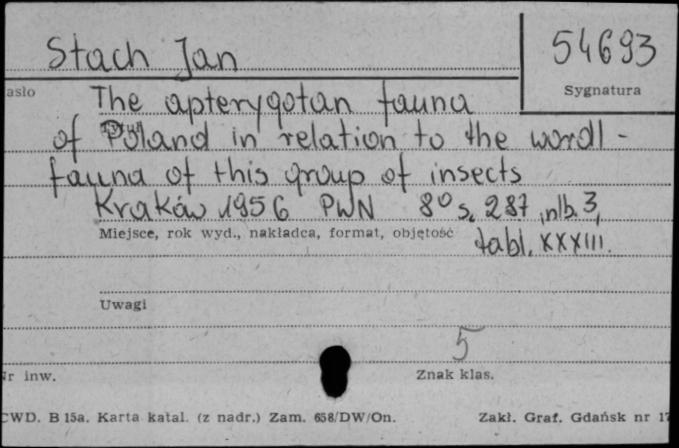 Stach Jan
54693
asło
Sygnatura
The apterygotan fauna
of Poland in relation to the wordl-
fauna of this group of insects
Kraków 1956 PWN 8° s. 287, nlb. 3,
Miejsce, rok wyd., nakładca, format, objętość
tabl. XXXIII.
Uwagi
5
Nr inw.
Znak klas.
CWD. B 15a. Karta katal. (z nadr.) Zam. 658/DW/On.
Zakł. Graf. Gdańsk nr 17